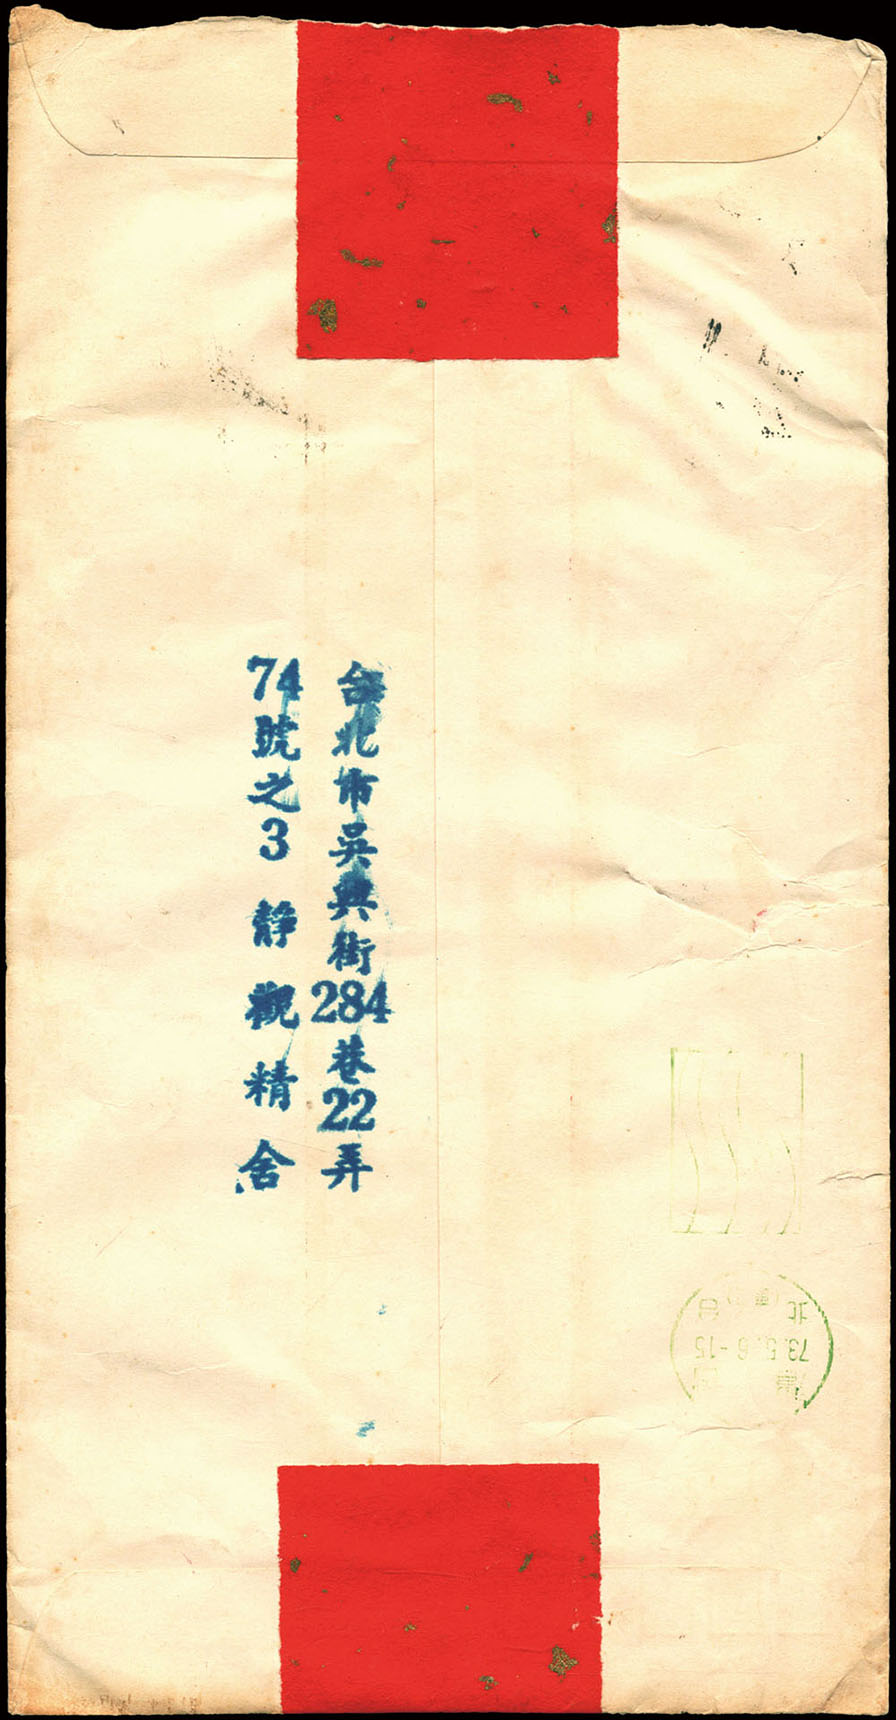 台北市吳興街284巷22弄
74號之3 靜觀精舍
台北
73.5.6-15